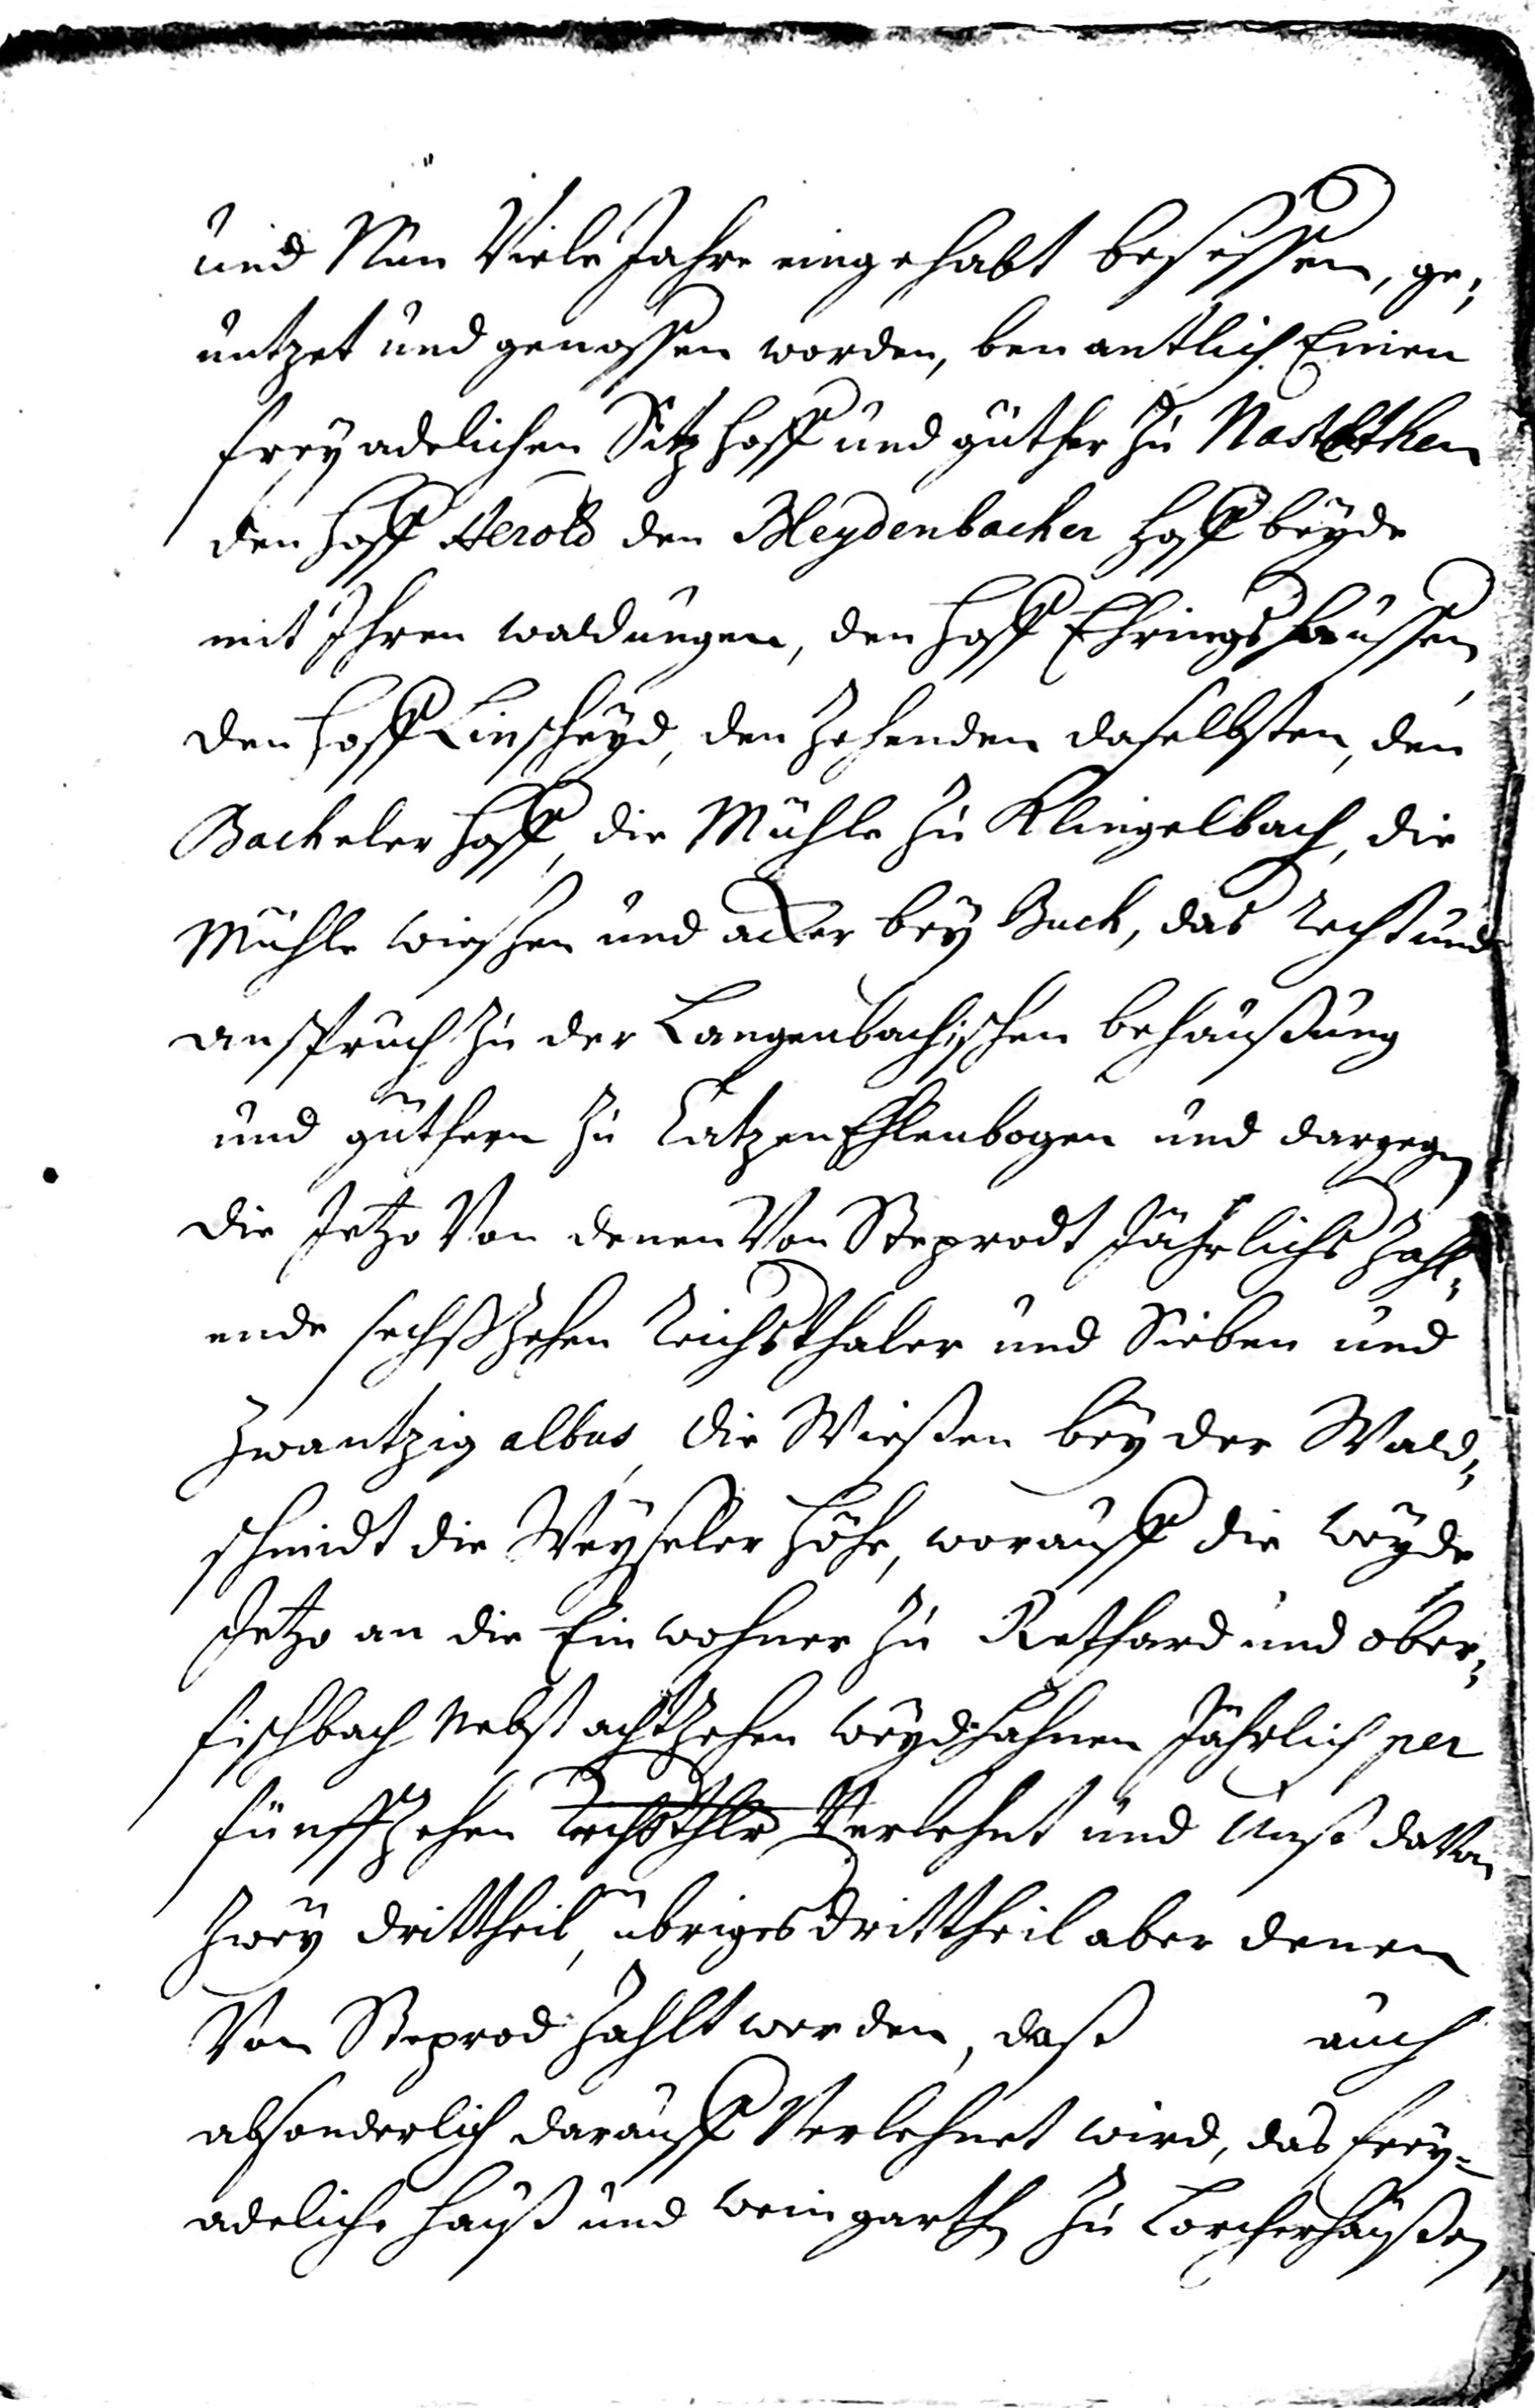 und Nun Viele Jahre eingehabt besessen, ge,
nutzet und genossen worden, benantlich Einen
freyadelichen Sitz hoff und güther zu Nastetthen
den hoff Herold den Meydenbacher hoff beyde
mit Ihren waldungen, den hoff Ehringshaussen,
den hoff Linscheyd, den Zehenden daselbsten, den
Bacheler hoff, die Mühle zu Klingelbach, die
Mühle wieszen und acker bey Buch, das recht und
anspruch zu der Langenbachischen behaußung
und güthern zu CatzenEhlenbogen und dargegen
die Jetzo Von denen Von Steprodt Jährlichs Zahl,
ende sechßzehen Reichsthaler und Sieben und
Zwantzig albus, die Wießen bey der Wald,
schmidt die Weyseler höhe, worauff die weyde
Jetzo an die Einwohner zu Retthard und ober,
fischbach Nebst achtzehen weydhahnen Jährlich per
fünffzehen Rchsthlr Verlehnt und Unß davon
Zwey drittheil, übriges dritttheil aber denen
Von Steprod Zahlt werden, daß auch
absonderlich darauff Verlehnet wird, das frey=
adeliche hauß und weingarthen zu Lorcherhaußen,